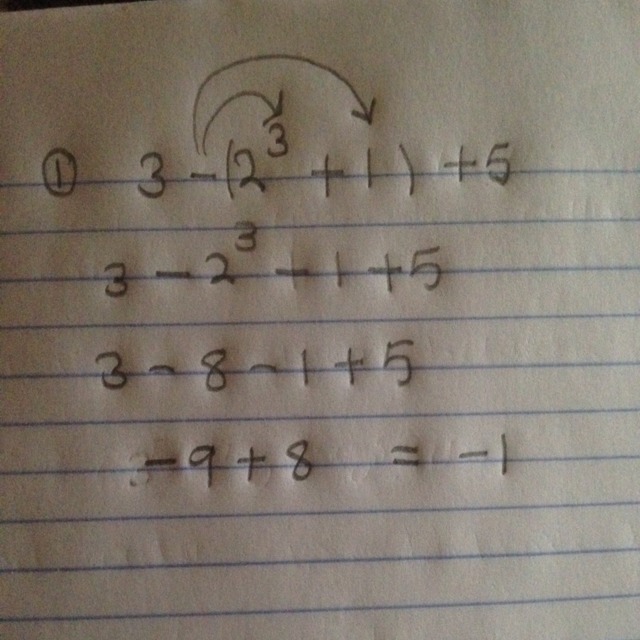 ① 3 -(2³ + 1) +5
3 - 2³ - 1 +5
3 - 8 - 1 + 5
- 9 + 8 = -1